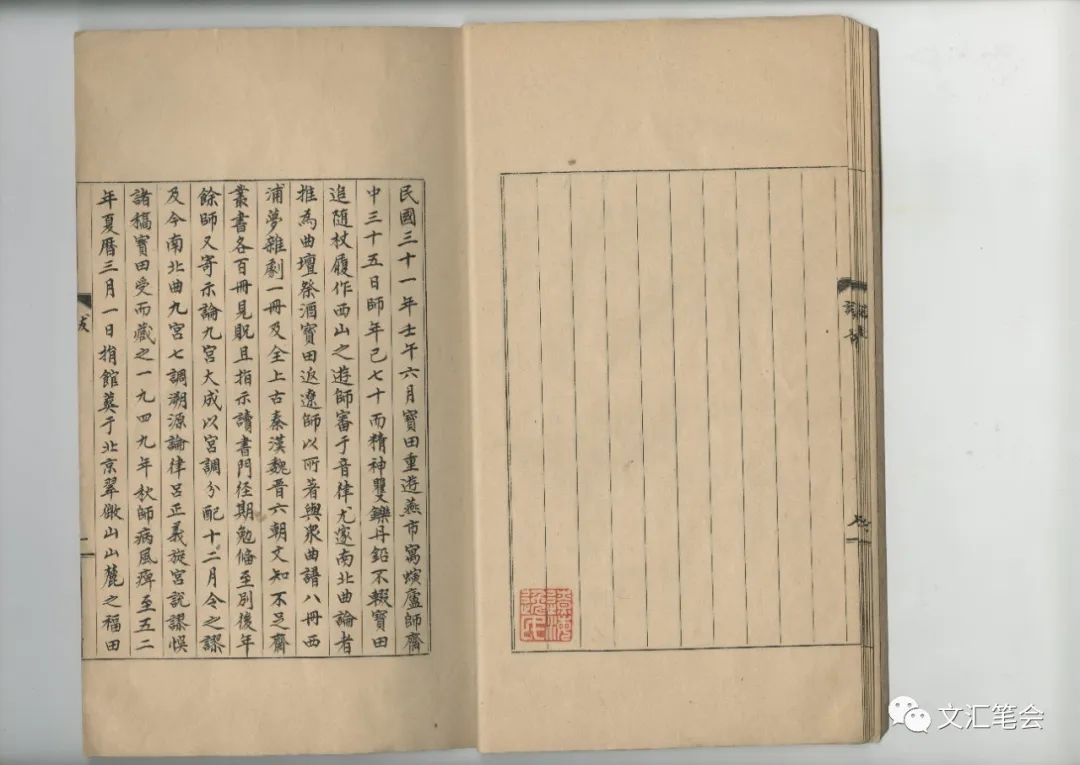 民國三十一年壬午六月寶田重遊燕市寓螾廬師齋
中三十五日師年已七十而精神矍鑠丹鉛不輟寶田
追隨杖履作西山之遊師審于音律尤邃南北曲論者
推為曲壇祭酒寶田返遼師以所著與眾曲譜八冊西
浦夢雜劇一冊及全上古秦漢魏晋六朝文知不足齋
叢書各百冊見貺且指示讀書門径期勉俻至別後年
餘師又寄示論九宮大成以宮調分配十二月令之謬
及今南北曲九宮七調溯源論律呂正義旋宮說謬悞
諸稿寶田受而藏之一九四九年秋師病風痺至五二
年夏曆三月一日捐館葬于北京翠微山山麓之福田
文汇笔会